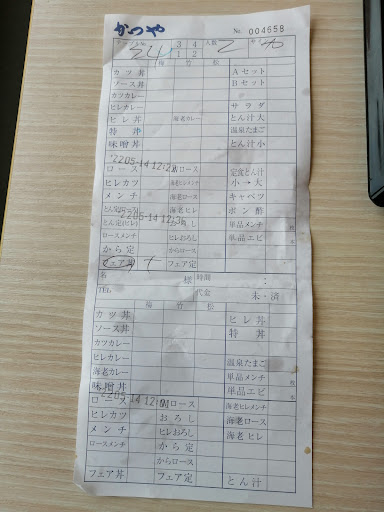 かつや No. 004658
24 3 4 1 2 人数 2
梅 竹 松
カツ丼 Aセット
ソース丼 Bセット
カツカレー
ヒレカレー サラダ
ヒレ丼 海老カレー とん汁大
特丼 温泉たまご
味噌丼 とん汁小
ロース 定食とん汁
ヒレカツ 海老ヒレメンチ 小→大
メンチ 海老ロース キャベツ
とん定(ロース) 海老ヒレ ポン酢
とん定(ヒレ) 単品メンチ
ロースメンチ ヒレおろし 単品エビ
から定 からロース
フェア丼 フェア定
'22 05-14 12:2
'22 05-14 12:
名 様 時間 :
TEL 代金 未・済
梅 竹 松
カツ丼 ヒレ丼
ソース丼 特丼
カツカレー
ヒレカレー 温泉たまご
海老カレー 単品メンチ
味噌丼 単品エビ
ロース 海老ヒレメンチ
ヒレカツ おろし 海老ロース
メンチ ヒレおろし 海老ヒレ
ロースメンチ から定
からロース
フェア丼 フェア定 とん汁